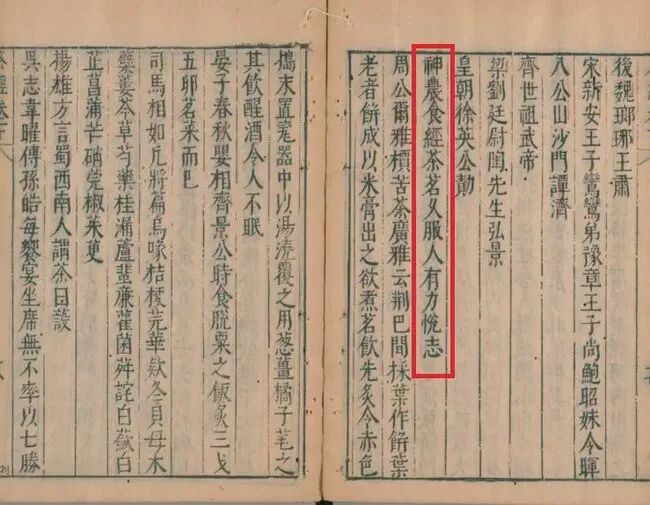 後魏瑯琊王肅
宋新安王子鸞鸞弟豫章王子尚鮑昭妹令暉
八公山沙門譚濟
齊世祖武帝
梁劉廷尉陶先生弘景
皇朝徐英公勣
神農食經茶茗久服人有力悅志
周公爾雅檟苦茶廣雅云荊巴間採葉作餅葉
老者餅成以米膏出之欲煮茗飲先炙令赤色
搗末置瓷器中以湯澆覆之用葱薑橘子芼之
其飲醒酒令人不眠
晏子春秋嬰相齊景公時食脫粟之飯炙三戈
五卵茗菜而巳
司馬相如凡將篇烏喙桔梗芫華款冬貝母木
蘗蔞芩草芍藥桂漏蘆蜚廉雚菌荈詫白蘞白
芷菖蒲芒硝莞椒茱萸
揚雄方言蜀西南人謂茶曰蔎
吳志韋曜傳孫皓每饗宴坐席無不率以七勝